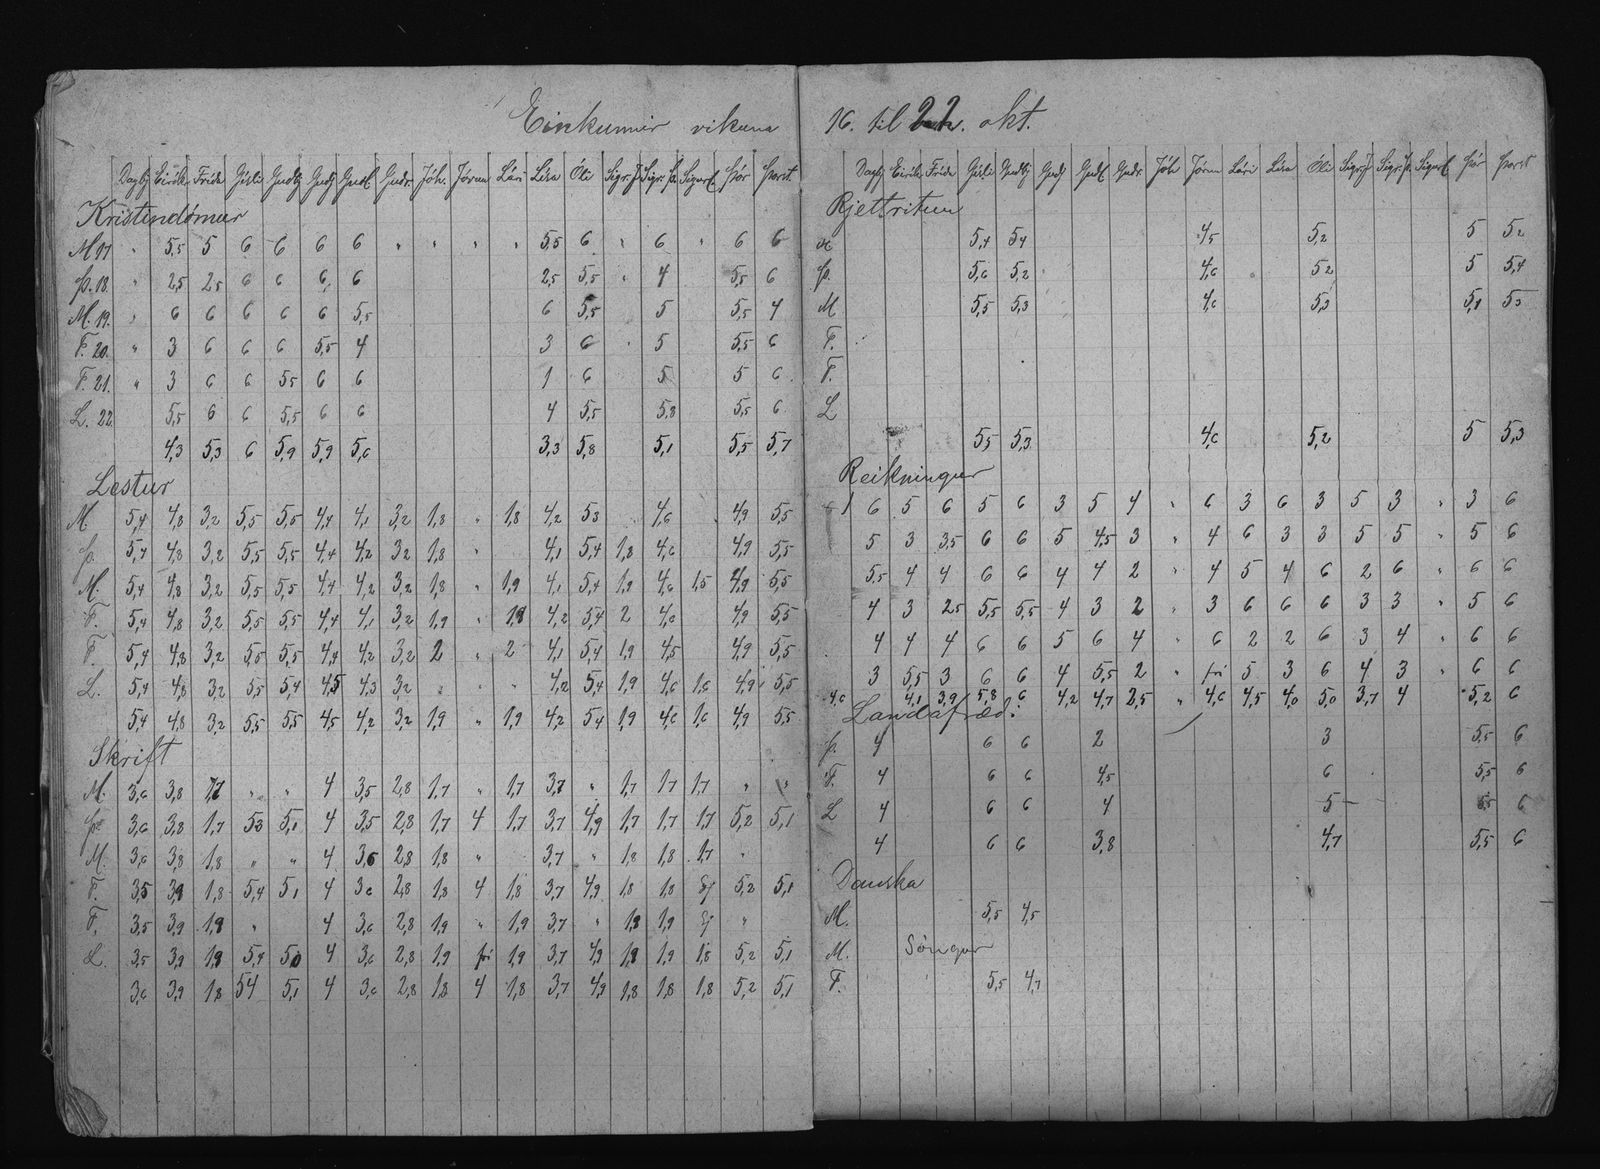 Einkunnir vikuna
Dagbj Eirík. Frída Gísli Gudbj Gudj Gudl Gudr. Jóh. Jórun Lári Lísa Óli Sigr. J Sigr. Þ. Sigurl Þór Þorst.
Kristindómur
M 17 " 5,5 5 6 6 6 6 " " " " 5,5 6 " 6 " 6 6
Þ. 18. " 2,5 2,5 6 6 6 6 2,5 5,5 " 4 5,5 6
M. 19. " 6 6 6 6 6 5,5 6 5,5 5 5,5 4
F. 20. " 3 6 6 6 5,5 4 3 6 5 5,5 6
F. 21. " 3 6 6 5,5 6 6 1 6 5 5 6
L. 22 5,5 6 6 5,5 6 6 4 5,5 5,8 5,5 6
4,3 5,3 6 5,9 5,9 5,6 3,3 5,8 5,1 5,5 5,7
Lestur
M 5,4 4,8 3,2 5,5 5,5 4,4 4,1 3,2 1,8 " " 1,8 4,2 5,3 4,6 4,9 5,5
Þ. 5,4 4,8 3,2 5,5 5,5 4,4 4,2 3,2 1,8 " 4,1 5,4 1,8 4,6 4,9 5,5
M. 5,4 4,8 3,2 5,5 5,5 4,4 4,2 3,2 1,8 " 1,9 4,1 5,4 1,9 4,6 1,5 4,9 5,5
F. 5,4 4,8 3,2 5,5 5,5 4,4 4,1 3,2 1,9 " 1,8 4,2 5,4 2 4,6 4,9 5,5
F. 5,4 4,8 3,2 5,5 5,5 4,4 4,2 3,2 2 " 2 4,1 5,4 1,9 4,5 4,9 5,5
L. 5,4 4,8 3,2 5,5 5,4 4,5 4,3 3,2 " " " 4,2 5,4 1,9 4,6 1,6 4,9 5,5
5,4 4,8 3,2 5,5 5,5 4,5 4,2 3,2 1,9 " 1,9 4,2 5,4 1,9 4,6 1,6 4,9 5,5
Skrift
M. 3,6 3,8 1,7 " " 4 3,5 2,8 1,7 " 1,7 3,7 " 1,7 1,7 1,7 " "
Þ. 3,6 3,8 1,7 5,3 5,1 4 3,5 2,8 1,7 4 1,7 3,7 4,9 1,7 1,7 1,7 5,2 5,1
M. 3,6 3,8 1,8 " " 4 3,6 2,8 1,8 " 3,7 " 1,8 1,8 1,7 "
F. 3,5 3,9 1,8 5,4 5,1 4 3,6 2,8 1,8 4 1,8 3,7 4,9 1,8 1,8 5,2 5,1
F. 3,5 3,9 1,9 " 4 3,6 2,8 1,9 " 1,9 3,7 " 1,8 1,9 "
L. 3,5 3,9 1,9 5,4 5,0 4 3,6 2,8 1,9 frí 1,9 3,7 4,9 1,9 1,9 1,8 5,2 5,1
3,6 3,9 1,8 5,4 5,1 4 3,6 2,8 1,8 4 1,8 3,7 4,9 1,8 1,8 1,8 5,2 5,1
16. til 22. okt.
Dagbj Eirík. Frída Gísli Gudbj Gudj Gudl Gudr. Jóh Jórun Lári Lísa Óli Sigr. J Sigr. Þ. Sigurl Þór Þorst
Rjettritun
M 5,4 5,4 4,5 5,2 5 5,2
Þ. 5,6 5,2 4,6 5,2 5 5,4
M 5,5 5,3 4,6 5,3 5,1 5,3
F.
F.
L
5,5 5,3 4,6 5,2 5 5,3
Reikningur
6 5 6 5 6 3 5 4 " 6 3 6 3 5 3 " 3 6
5 3 3,5 6 6 5 4,5 3 " 4 6 3 3 5 5 " 5 6
5,5 4 4 6 6 4 4 2 " 4 5 4 6 2 6 " 6 6
4 3 2,5 5,5 5,5 4 3 2 " 3 6 6 6 3 3 " 5 6
4 4 4 6 6 5 6 4 " 6 2 2 6 3 4 " 6 6
3 5,5 3 6 6 4 5,5 2 " frí 5 3 6 4 3 " 6 6
4,6 4,1 3,9 5,8 6 4,2 4,7 2,5 " 4,6 4,5 4,0 5,0 3,7 4 5,2 6
Landafræd.
Þ. 4 6 6 2 3 5,5 6
F. 4 6 6 4,5 6 5,5 6
L 4 6 6 4 5 5,5 6
4 6 6 3,8 4,7 5,5 6
Danska
M. 5,5 4,5
M. Söngur
F. 5,5 4,7